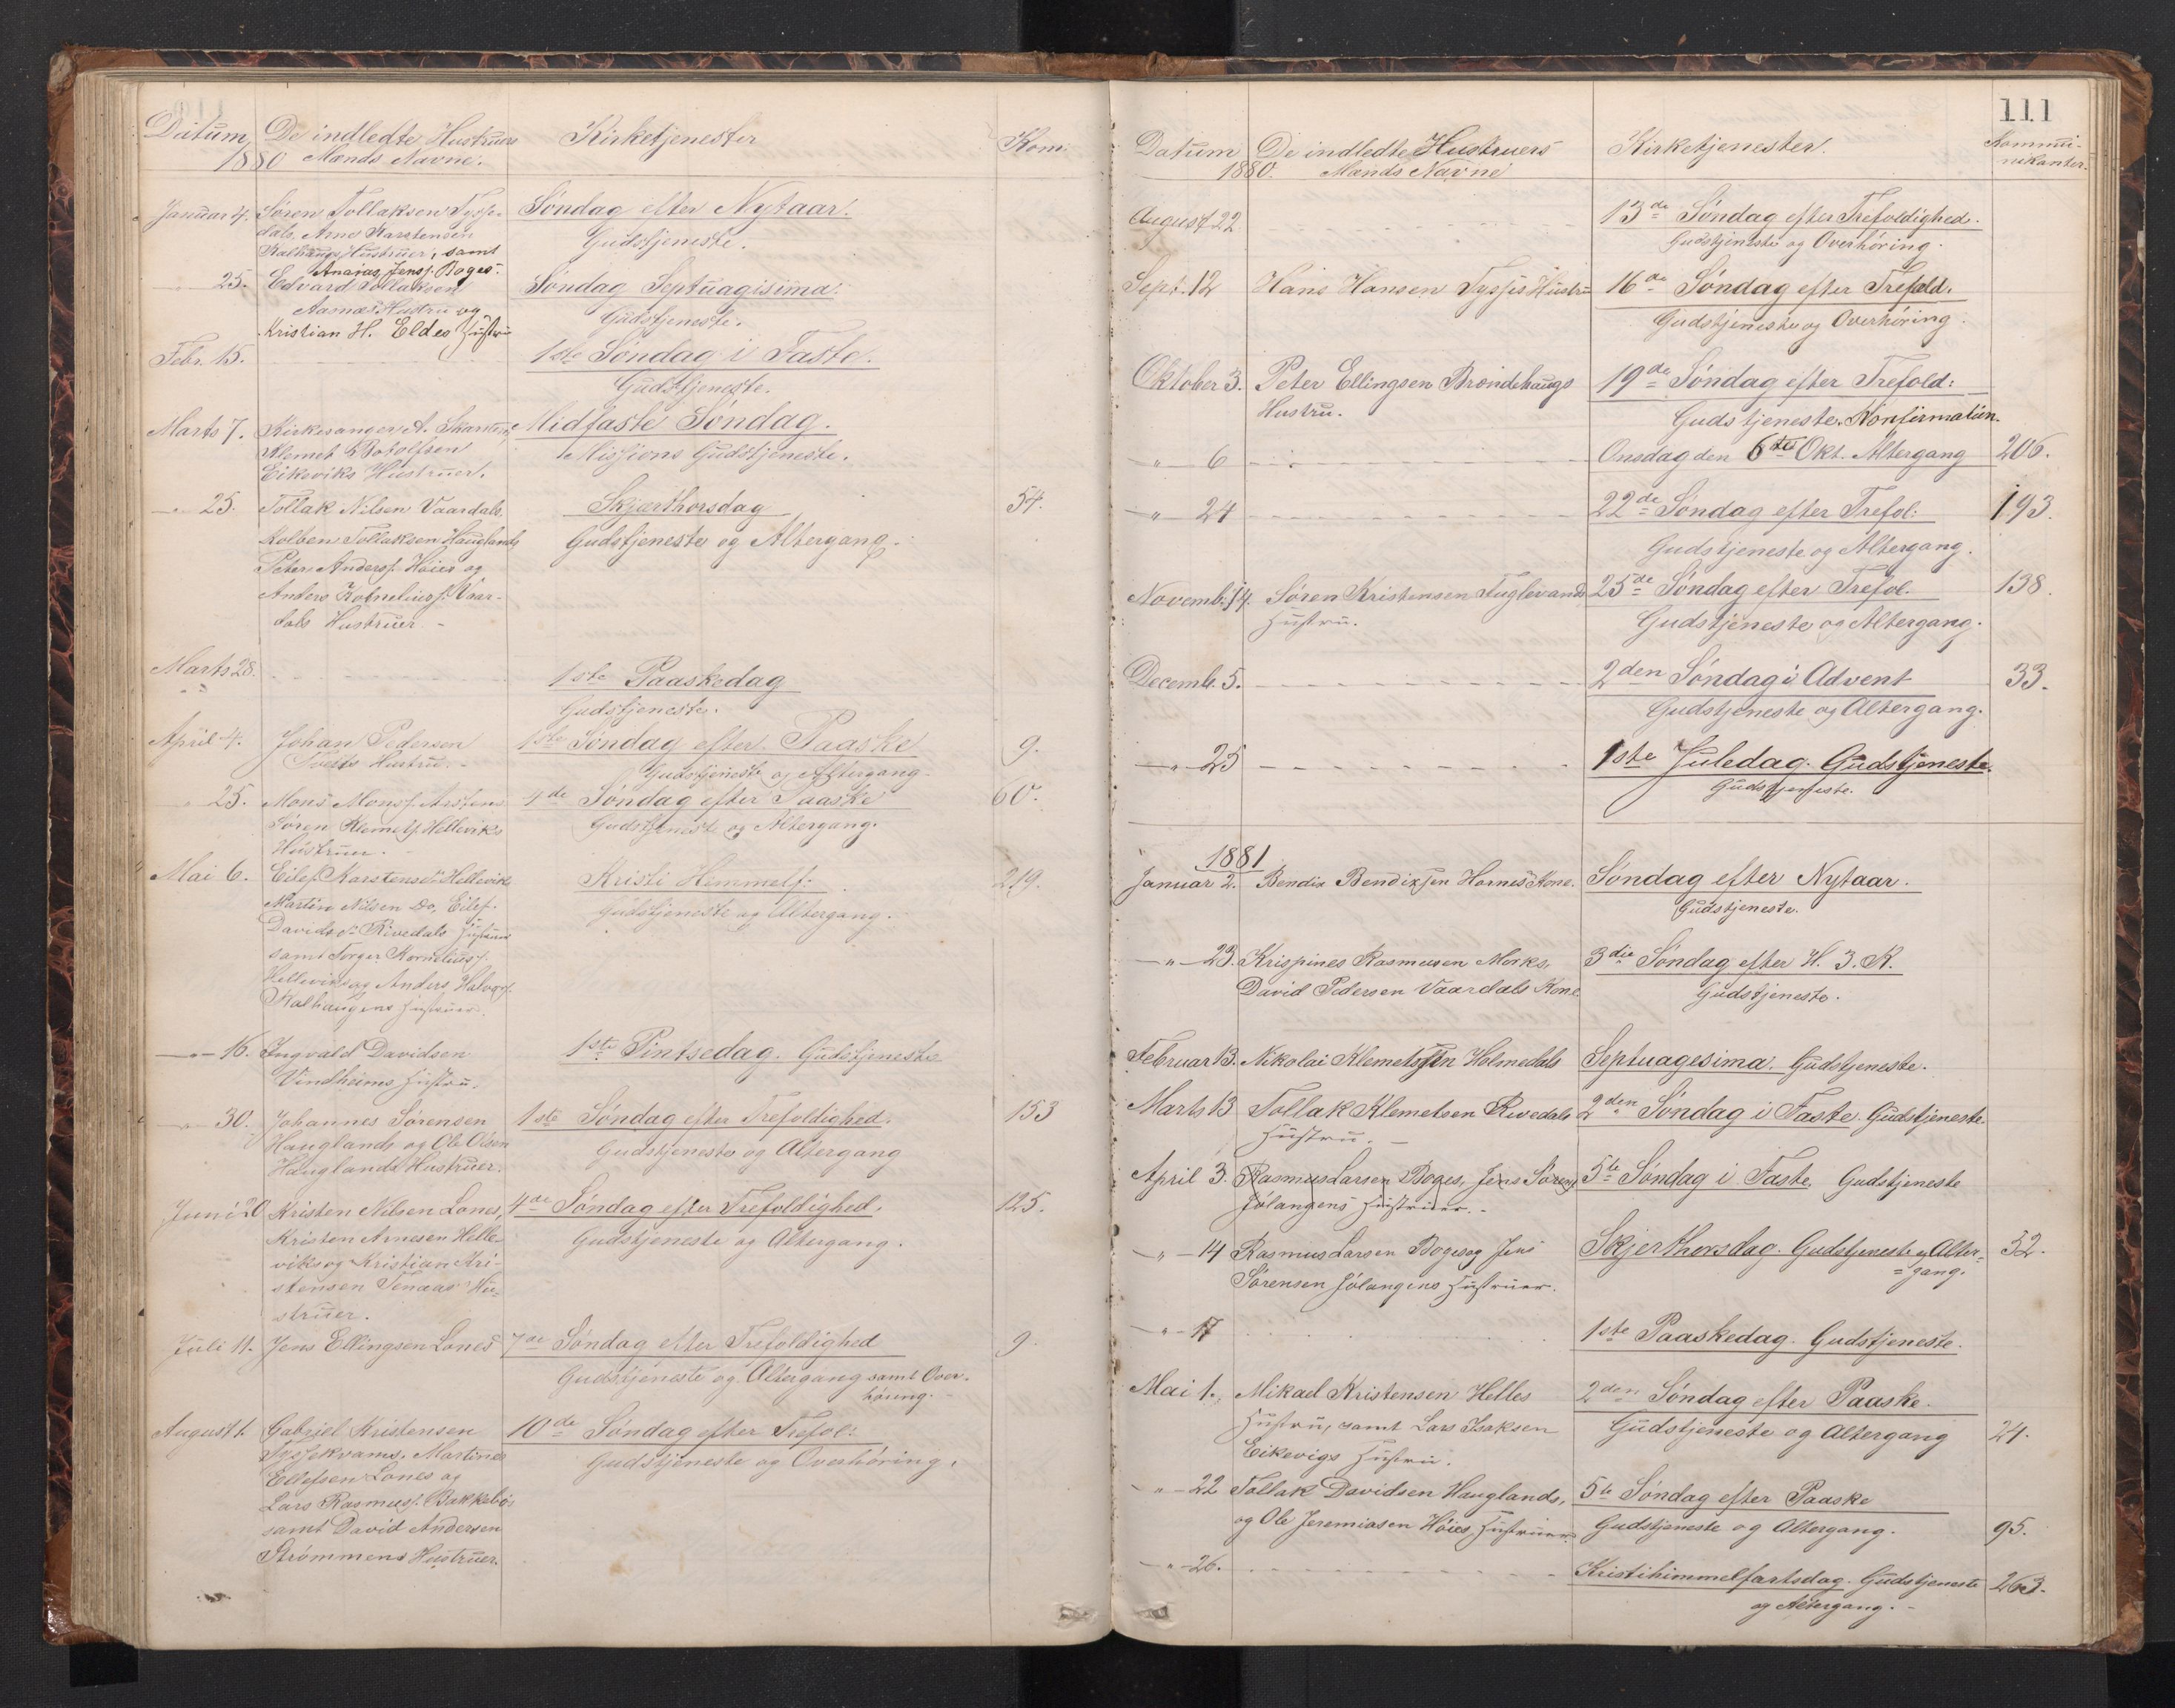 Datum 1880
De indledte Hustruers
Mænds Navne.
Kirketjenester
Kom:
Januar 4. Søren Tollaksen Tysse- Søndag efter Nytaar.
dals, Arne Karstensen Gudstjeneste.
Kalhaugs Hustruer, samt
Ananias Jensf. Boges.
" 25. Edvard Tollaksen Søndag Septuagisima.
Aasnæs Hustru og Gudstjeneste.
Kristian H. Eldes Hustru
Febr. 15. 1ste Søndag i Faste.
Gudstjeneste.
Marts 7. Kirkesanger A. Skarstein, Midfaste Søndag.
Klemet Botolfsen Missions Gudstjeneste.
Eikeviks Hustruer.
" 25. Tollak Nilsen Vaardals Skjærthorsdag 54.
Kolben Tollaksen Hauglands Gudstjeneste og Altergang.
Peter Andersf. Høies og
Anders Kornelius f. Vaar-
dals Hustruer
Marts 28. 1ste Paaskedag
Gudstjeneste.
April 4. Johan Pedersen 1ste Søndag efter Paaske 9.
Hustru. Gudstjeneste og Altergang
" 25. Mons Monsf. 4de Søndag efter Paaske 60.
Søren Klemetf. Helleviks Gudstjeneste og Altergang.
Hustruer.
Mai 6. Eilef Karstensen Hellevik Kristi Himmelf: 219.
Martin Nilsen Do, Eilef Gudstjeneste og Altergang.
Davids Rivedals Hustruer
samt Torger Kornelius f.
Helleviks og Anders Halvorf.
Kalhaugens Hustruer.
" 16. Ingvald Davidsen 1ste Pintsedag. Gudstjeneste
Vindheims Hustru.
" 30. Johannes Sørensen 1ste Søndag efter Trefoldighed. 153
Hauglands og Ole Olsen Gudstjeneste og Altergang
Hauglands Hustruer.
Juni 20 Kristen Nilsen Lones, 4de Søndag efter Trefoldighed. 125.
Kristen Arnesen Helle- Gudstjeneste og Altergang.
viks og Kristian Kri-
stensen Tenaas Hu-
struer.
Juli 11. Jens Ellingsen Lones 7de Søndag efter Trefoldighed 9.
Gudstjeneste og Altergang samt Over-
høring.
August 1. Gabriel Kristensen 10de Søndag efter Trefol:
Tyssekvams, Martines Gudstjeneste og Overhøring.
Ellefsen Lones og
Lars Rasmusf. Bakkebø
samt David Andersen
Strømmens Hustruer.
111
Datum 1880.
De indledte Hustruers
Mænds Navne
Kirketjenester.
Kommu-
nikanter.
August 22 13de Søndag efter Trefoldighed.
Gudstjeneste og Overhøring.
Sept. 12 Hans Hansen Tysses Hustru 16de Søndag efter Trefold.
Gudstjeneste og Overhøring.
Oktober 3. Peter Ellingsen Brændehaugs 19de Søndag efter Trefold:
Hustru. Gudstjeneste. Konfirmation.
" 6 Onsdag den 6te Okt. Altergang 206.
" 24 22de Søndag efter Trefol: 193.
Gudstjeneste og Altergang.
Novemb. 14. Søren Kristensen Fuglevands 25de Søndag efter Trefol. 138.
Hustru. Gudstjeneste og Altergang.
Decemb. 5. 2den Søndag i Advent 33.
Gudstjeneste og Altergang.
" 25 1ste Juledag. Gudstjeneste.
Gudstjeneste.
1881
Januar 2. Bendix Bendixsen Hornes Kone. Søndag efter Nytaar.
Gudstjeneste.
" 23. Krispines Rasmusen Morks, 3die Søndag efter H. 3. K.
David Pedersen Vaardals Kone Gudstjeneste.
Februar 13. Nikolai Klemetsen Holmedals Septuagesima. Gudstjeneste.
Marts 13 Tollak Klemetsen Rivedals 2den Søndag i Faste. Gudstjeneste
Hustru.
April 3. Rasmus Larsen Boges, Jens Sørens 5te Søndag i Faste. Gudstjeneste
Hustruer.
" 14 Rasmus Larsen Boges og Jens Skjerthorsdag. Gudstjeneste og Alter- 52.
Sørensen Hustruer. gang.
" 17 1ste Paaskedag. Gudstjeneste.
Mai 1. Mikael Kristensen Helles 2den Søndag efter Paaske.
Hustru, samt Lars Isaksen Gudstjeneste og Altergang 24.
Eikevigs Hustru.
" 22 Tollak Davidsen Hauglands, 5te Søndag efter Paaske
og Ole Jeremiasen Høies Hustruer. Gudstjeneste og Altergang. 95.
" 26. Kristihimmelfartsdag. Gudstjeneste 263.
og Altergang.